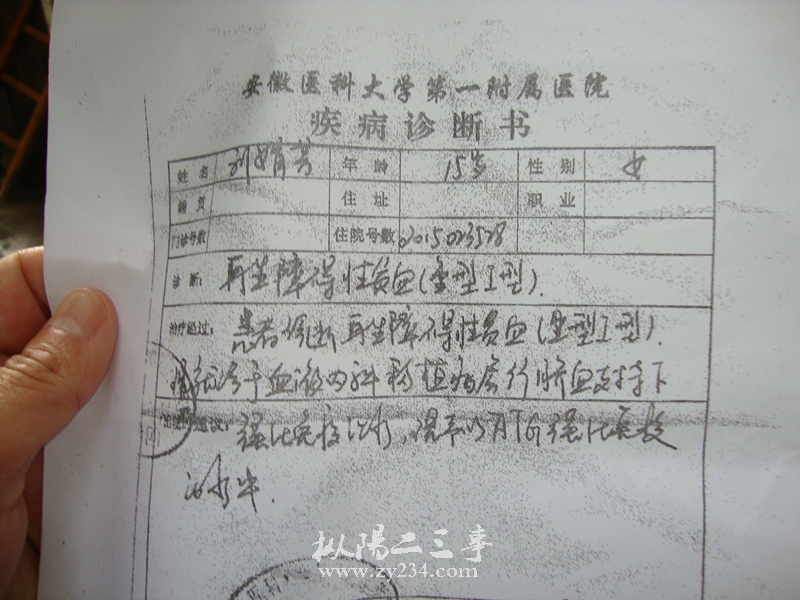 安徽医科大学第一附属医院
疾病诊断书
姓名 刘娟芳 年龄 15岁 性别 女
籍贯 住址 职业
门诊号数 住院号数
诊断: 再生障碍性贫血(重型I型).
治疗过程: 患者诊断再生障碍性贫血(重型I型).
于血液内科移植病房行脐血支持下
建议: 强化免疫治疗, 强化免疫
治疗中.
枞陽二三事
www.zy234.com